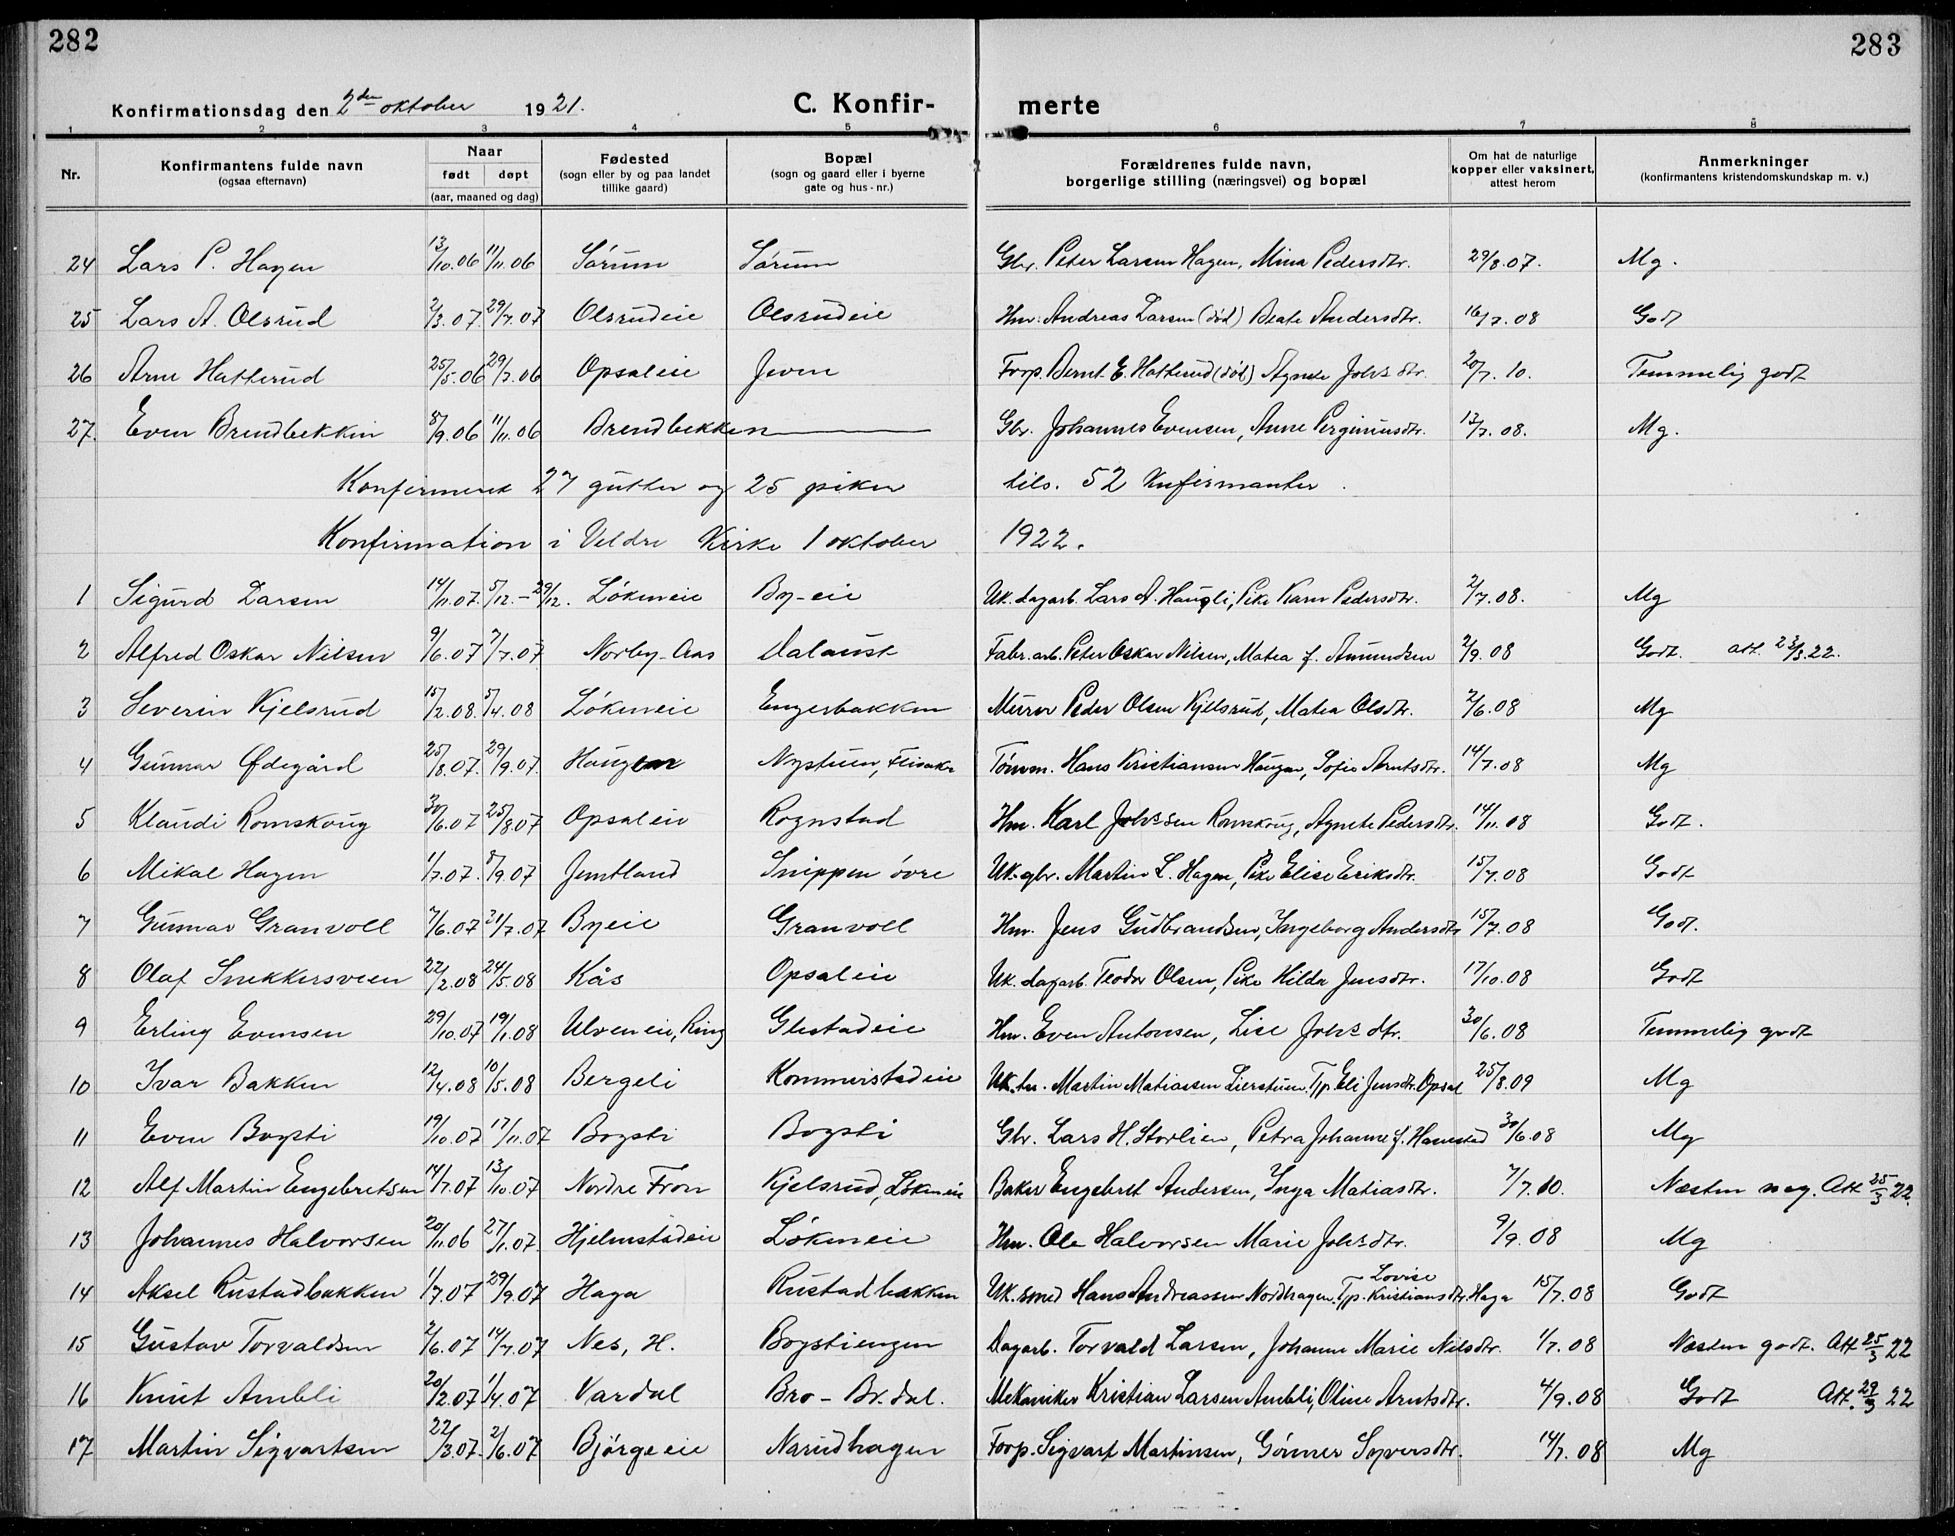 282
283
Konfirmationsdag den 2den oktober 1921.
C. Konfir-
merte
1 2 3 4 5 6 7 8
Nr.
Konfirmantens fulde navn
(ogsaa efternavn)
Naar
født døpt
(aar, maaned og dag)
Fødested
(sogn eller by og paa landet
tillike gaard)
Bopæl
(sogn og gaard eller i byerne
gate og hus-nr.)
Forældrenes fulde navn,
borgerlige stilling (næringsvei) og bopæl
Om hat de naturlige
kopper eller vaksinert,
attest herom
Anmerkninger
(konfirmantens kristendomskundskap m. v.)
24 Lars P. Hagen 13/10.06 11/11.06 Sørum Sørum Gbr. Peter Larsen Hagen, Mina Pedersdtr. 29/8.07. Mg.
25 Lars A. Olsrud 2/3.07. 29/7.07 Olsrudeie Olsrudeie Hm. Andreas Larsen (død) Beate Andersdtr. 16/7.08 Godt
26 Arne Hatterud 25/5.06 29/7.06 Opsaleie Jeven Forp. Bernt E. Hatterud (død) Agnete Johsdtr. 20/7.10. Temmelig godt
27. Even Brendbekken 8/9.06 11/11.06 Brendbekken Gbr. Johannes Evensen, Anne 13/7.08. Mg.
Konfirmert 27 gutter og 25 piker tils. 52 Konfirmanter.
Konfirmation i Veldre Kirke 1 oktober 1922.
1 Sigurd Larsen 14/11.07. 5/12.-29/12. Løkeneie By-eie Uk. dagarb. Lars A. Haugli, Pike Karen Pedersdtr. 2/7.08. Mg
2 Alfred Oskar Nilsen 9/6.07 7/7.07 Norby-Aas Dalaust Fabr. arb. Peter Oskar Nilsen, Matea f. Amundsen 2/9.08 Godt. att. 23/3.22.
3 Severin Kjelsrud 15/2.08. 5/4.08 Løkeneie Engerbakken Murer Peder Olsen Kjelsrud, Matea Olsdtr. 2/6.08 Mg
4 Gunnar Ødegård 25/8.07. 29/9.07. Haugen Nystuen, Flisaker Tømm. Hans Kristiansen Haugen, Sofie Arntsdtr. 14/7.08 Mg
5 Klaudi Romskoug 30/6.07 25/8.07 Opsaleie Rognstad Hm. Karl Johssen Romskoug, Agnete Pedersdtr. 14/11.08 Godt.
6 Mikal Hagen 1/7.07. 8/9.07 Jemtland Snippen øvre Uk. gbr. Martin L. Hagen, Pike Elise Eriksdtr. 15/7.08 Godt
7 Gunnar Granvoll 7/6.07 21/7.07 Byeie Granvoll Hm. Jens Gudbrandsen, Ingeborg Andersdtr 15/7.08 Godt.
8 Olaf Snekkersveen 22/2.08 24/5.08 Kås Opsaleie Uk. dagarb. Teodor Olsen, Pike Hilda Jensdtr. 17/10.08 Godt
9 Erling Evensen 29/10.07 19/1.08 Ulveneie, Ring Glestadeie Hm. Even Antonsen, Lise Johsdtr. 30/6.08 Temmelig godt
10 Ivar Bakken 12/4.08 10/5.08 Bergeli Kommerstadeie Uk. Martin Matiassen Lierstuen, Tjp. Eli Jensdtr. Opsal 25/8.09 Mg
11 Even Bogsti 19/10.07 17/11.07 Bogsti Bogsti Gbr. Lars H. Storlien, Petra Johanne f. Hamstad 30/6.08 Mg
12 Alf Martin Engebretsen 14/7.07 13/10.07 Nordre Fron Kjelsrud, Løkeneie Baker Engebret Andersen, Inga Matiasdtr. 7/7.10. Næsten mg. Att 25/3 22.
13 Johannes Halvorsen 20/11.06 27/1.07. Hjelmstadeie Løkeneie Hm. Ole Halvorsen Marie Johsdtr. 9/9.08 Mg
14 Aksel Rustadbakken 1/7.07 29/9.07 Haga Rustadbakken Uk. smed Hans Andreassen Nordhagen. Tjp. Lovise Kristiansdtr. Haga 15/7.08 Godt
15 Gustav Torvaldsen 2/6.07 14/7.07 Nes, H. Bogstiengen Dagarb. Torvald Larsen, Johanne Marie Nilsdtr. 1/7.08 Næsten godt. Att 25/3 22
16 Knut Ambli 20/2.07 1/4.07 Vardal Bro - Br.dal. Mekaniker Kristian Larsen Ambli, Oline Arntsdtr. 4/9.08 Godt Att. 29/3 22
17 Martin Sigvartsen 22/3.07. 2/6.07 Bjørgeeie Narudhagen Forp. Sigvart Martinsen, Gønner Syversdtr. 14/7.08 Mg